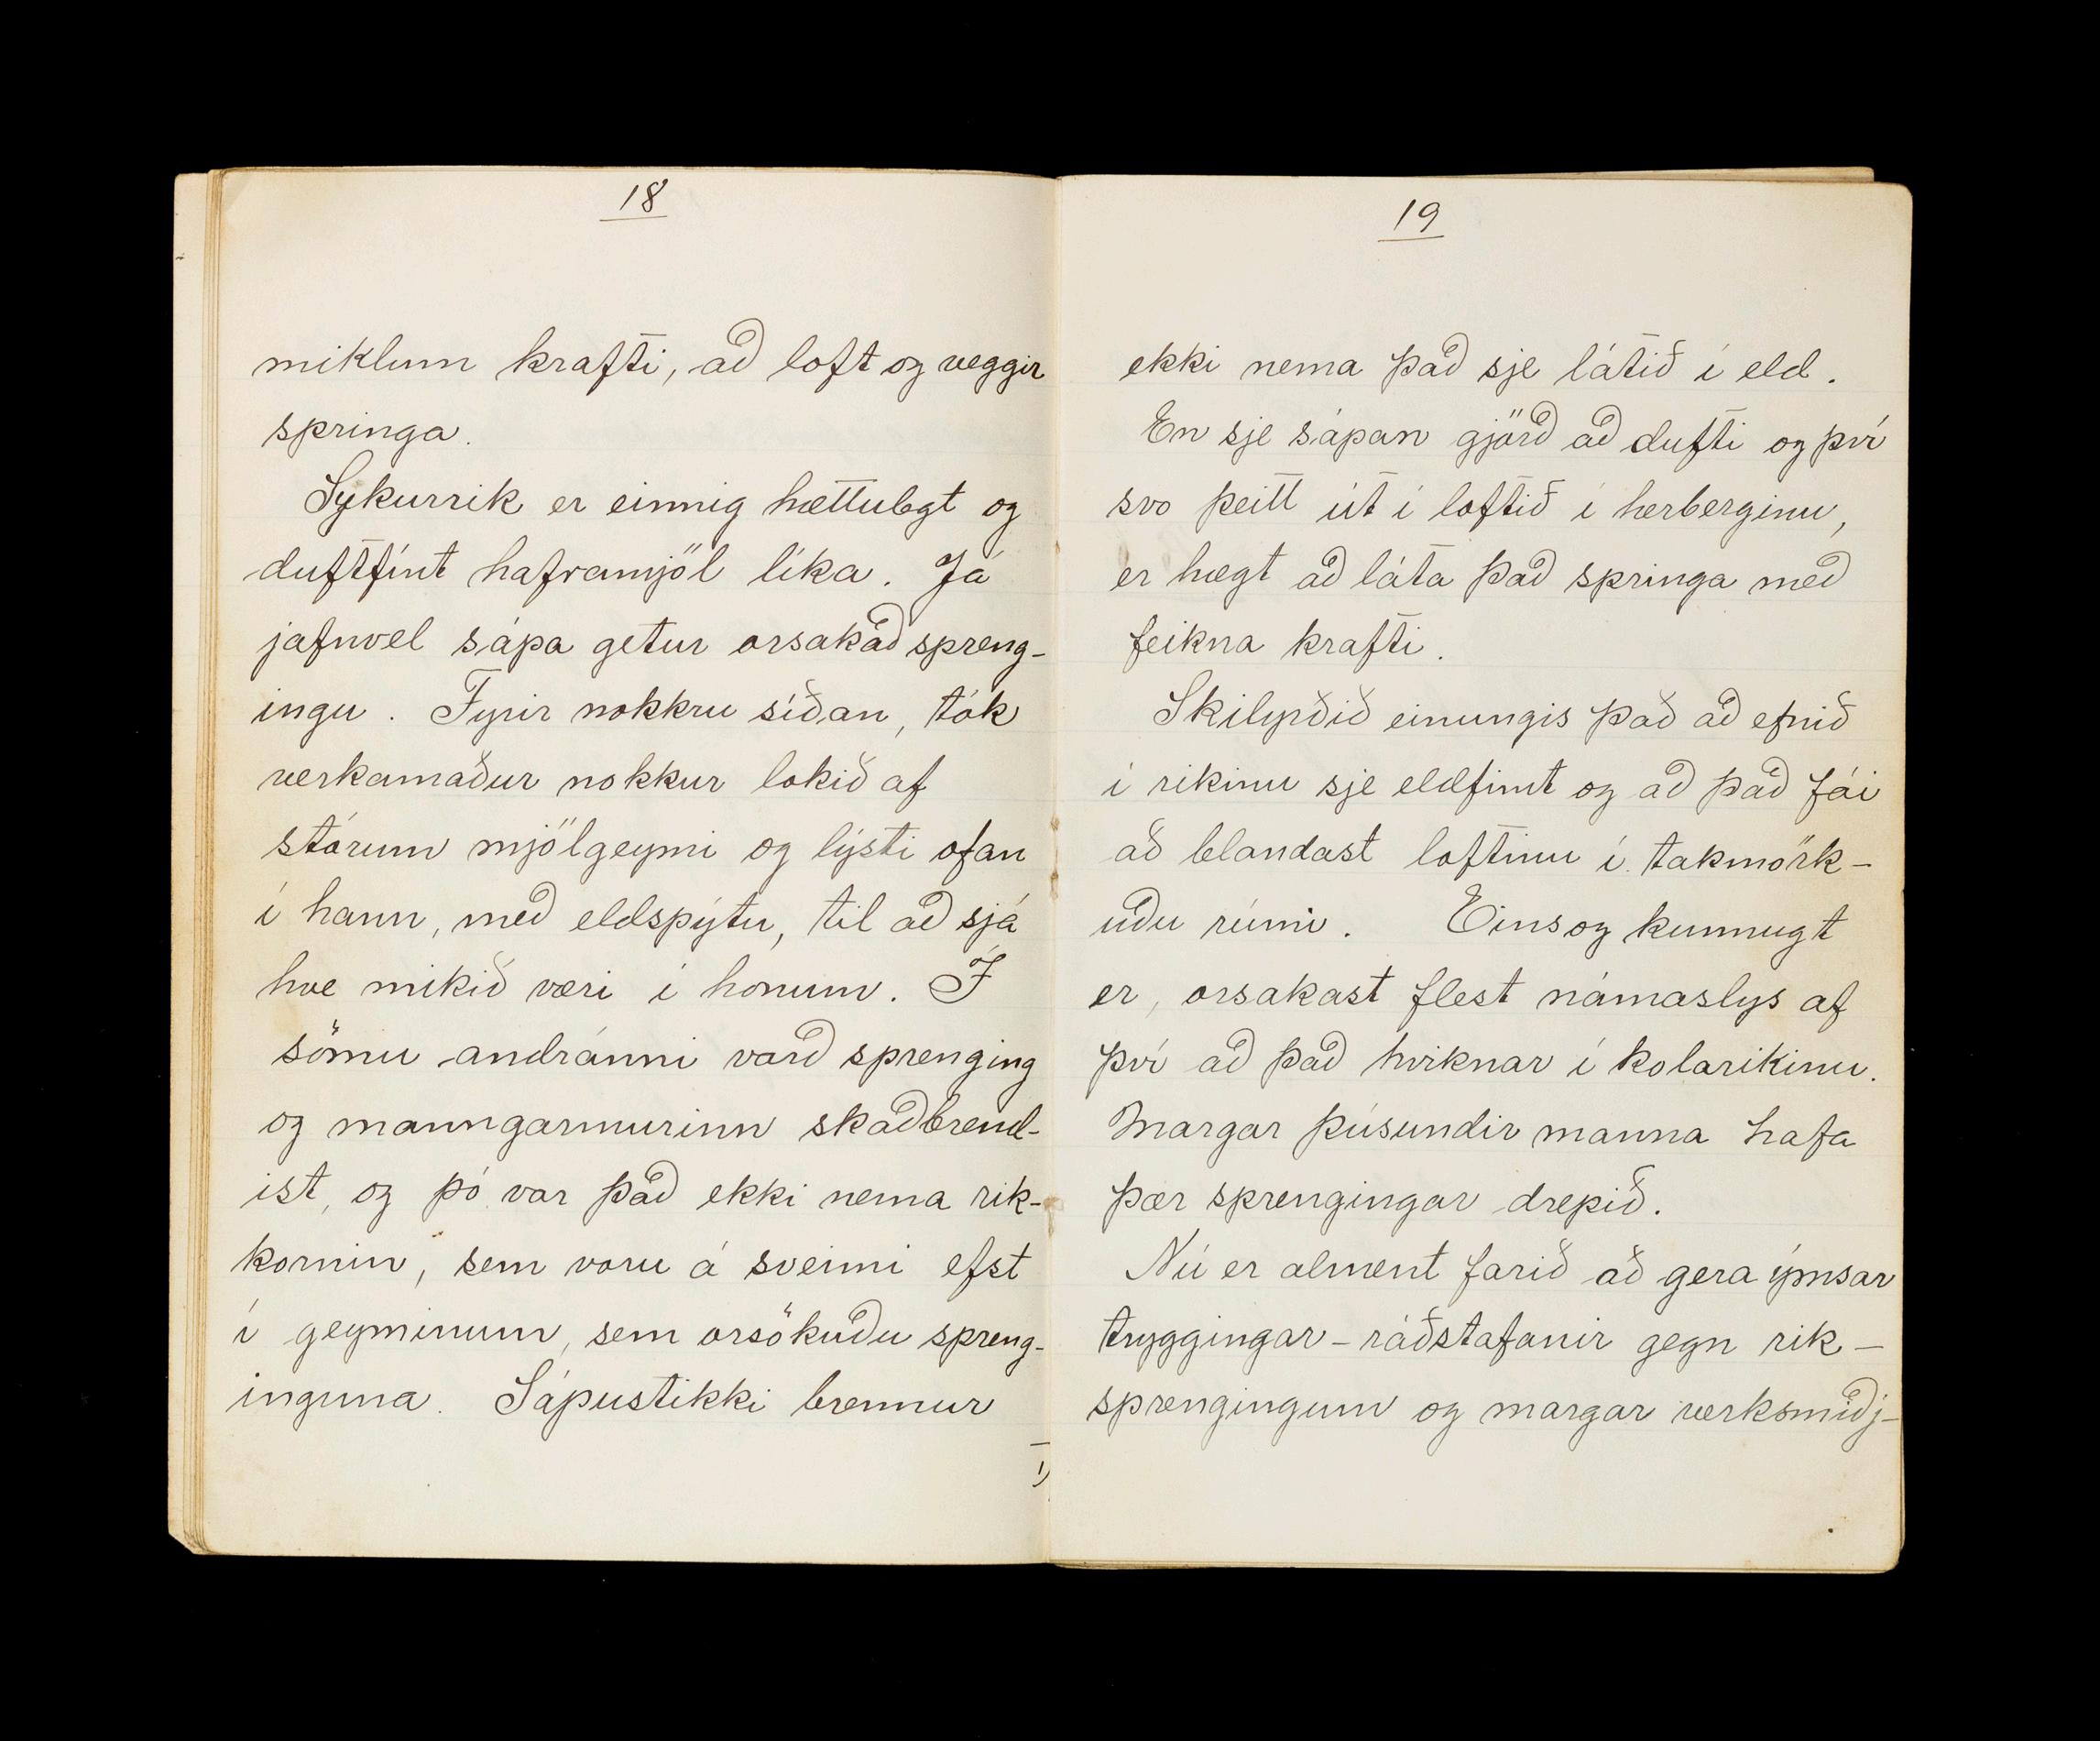 18
miklum krafti, að loft og veggir
springa.
Sykurrik er einnig hættulegt og
duftfínt haframjöl líka. Já
jafnvel sápa getur orsakað spreng-
ingu. Fyrir nokkru síðan, tók
verkamaður nokkur lokið af
stórum mjölgeymi og lýsti ofan
í hann, með eldspýtu, til að sjá
hve mikið væri í honum. Í
sömu andránni varð sprenging
og manngarmurinn skaðbrend-
ist, og þó var það ekki nema rik-
kornin, sem voru á sveimi efst
í geyminum, sem orsökuðu spreng-
inguna. Sápustikki brennur
19
ekki nema það sje látið í eld.
En sje sápan gjörð að dufti og því
svo þeitt út í loftið í herberginu,
er hægt að láta það springa með
feikna krafti.
Skilyrðið einungis það að efnið
í rikinu sje eldfimt og að það fái
að blandast loftinu í takmörk-
uðu rúmi. Eins og kunnugt
er, orsakast flest námaslys af
því að það kviknar í kolarikinu.
Margar þúsundir manna hafa
þær sprengingar drepið.
Nú er alment farið að gera ýmsar
tryggingar-ráðstafanir gegn rik-
sprengingum og margar verksmiðj-